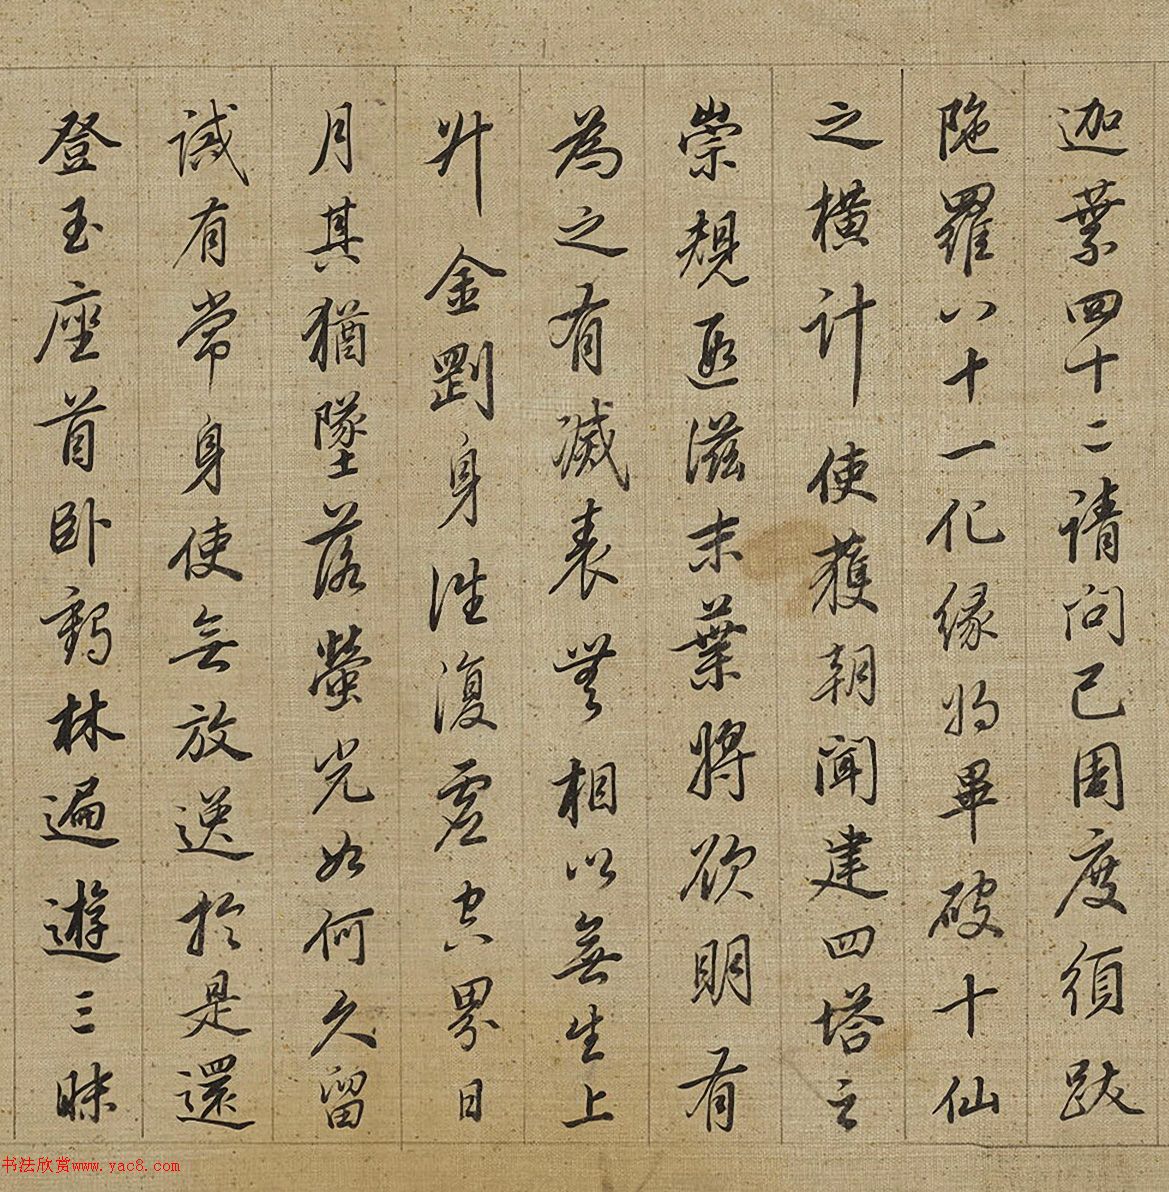 迦葉四十二請問已周度須跋
陁羅八十一化緣將畢破十仙
之橫計使獲朝聞建四塔之
崇規遐滋末葉將欲明有
為之有滅表無相以無生上
升金剛身往復虛空界日
月其猶墜落螢光如何久留
誡有常身使無放逸於是還
登玉座首臥鶴林遍遊三昧
书法欣赏www.yac8.com